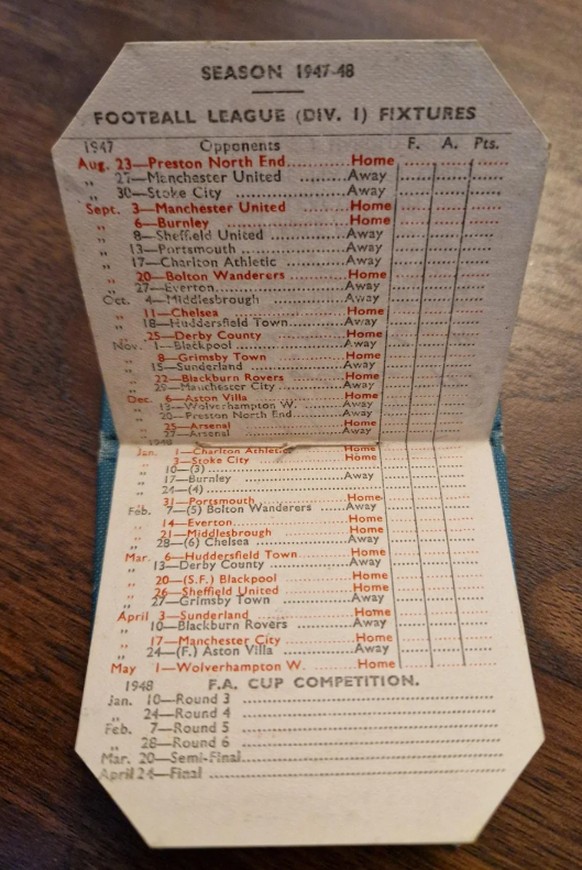 SEASON 1947-48
FOOTBALL LEAGUE (DIV. 1) FIXTURES
1947 Opponents F. A. Pts.
Aug. 23—Preston North End Home
„ 27—Manchester United Away
„ 30—Stoke City Away
Sept. 3—Manchester United Home
„ 6—Burnley Home
„ 8—Sheffield United Away
„ 13—Portsmouth Away
„ 17—Charlton Athletic Away
„ 20—Bolton Wanderers Home
„ 27—Everton Away
Oct. 4—Middlesbrough Away
„ 11—Chelsea Home
„ 18—Huddersfield Town Away
„ 25—Derby County Home
Nov. 1—Blackpool Away
„ 8—Grimsby Town Home
„ 15—Sunderland Away
„ 22—Blackburn Rovers Home
„ 29—Manchester City Away
Dec. 6—Aston Villa Home
„ 13—Wolverhampton W. Away
„ 20—Preston North End Away
„ 25—Arsenal Home
„ 27—Arsenal Away
1948
Jan. 1—Charlton Athletic Home
„ 3—Stoke City Home
„ 10—(3)
„ 17—Burnley Away
„ 24—(4)
„ 31—Portsmouth Home
Feb. 7—(5) Bolton Wanderers Away
„ 14—Everton Home
„ 21—Middlesbrough Home
„ 28—(6) Chelsea Away
Mar. 6—Huddersfield Town Home
„ 13—Derby County Away
„ 20—(S.F.) Blackpool Home
„ 26—Sheffield United Home
„ 27—Grimsby Town Away
April 3—Sunderland Home
„ 10—Blackburn Rovers Away
„ 17—Manchester City Home
„ 24—(F.) Aston Villa Away
May 1—Wolverhampton W. Home
1948 F.A. CUP COMPETITION.
Jan. 10—Round 3
„ 24—Round 4
Feb. 7—Round 5
„ 28—Round 6
Mar. 20—Semi-Final
April 24—Final